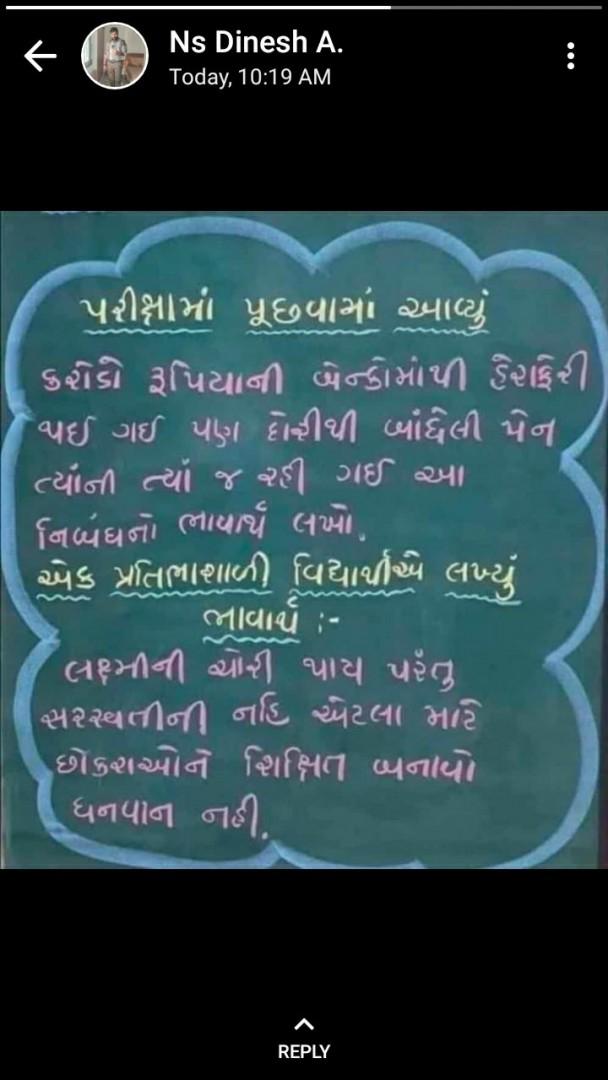 Ns Dinesh A.
Today, 10:19 AM
પરીક્ષામાં પૂછવામાં આવ્યું
કરોડો રૂપિયાની બેન્કોમાંથી હેરાફેરી
થઈ ગઈ પણ દોરીથી બાંધેલી પેન
ત્યાંની ત્યાં જ રહી ગઈ આ
નિબંધનો ભાવાર્થ લખો.
એક પ્રતિભાશાળી વિદ્યાર્થીએ લખ્યું
ભાવાર્થ :-
લક્ષ્મીની ચોરી થાય પરંતુ
સરસ્વતીની નહિ એટલા માટે
છોકરાઓને શિક્ષિત બનાવો
ધનવાન નહી.
REPLY